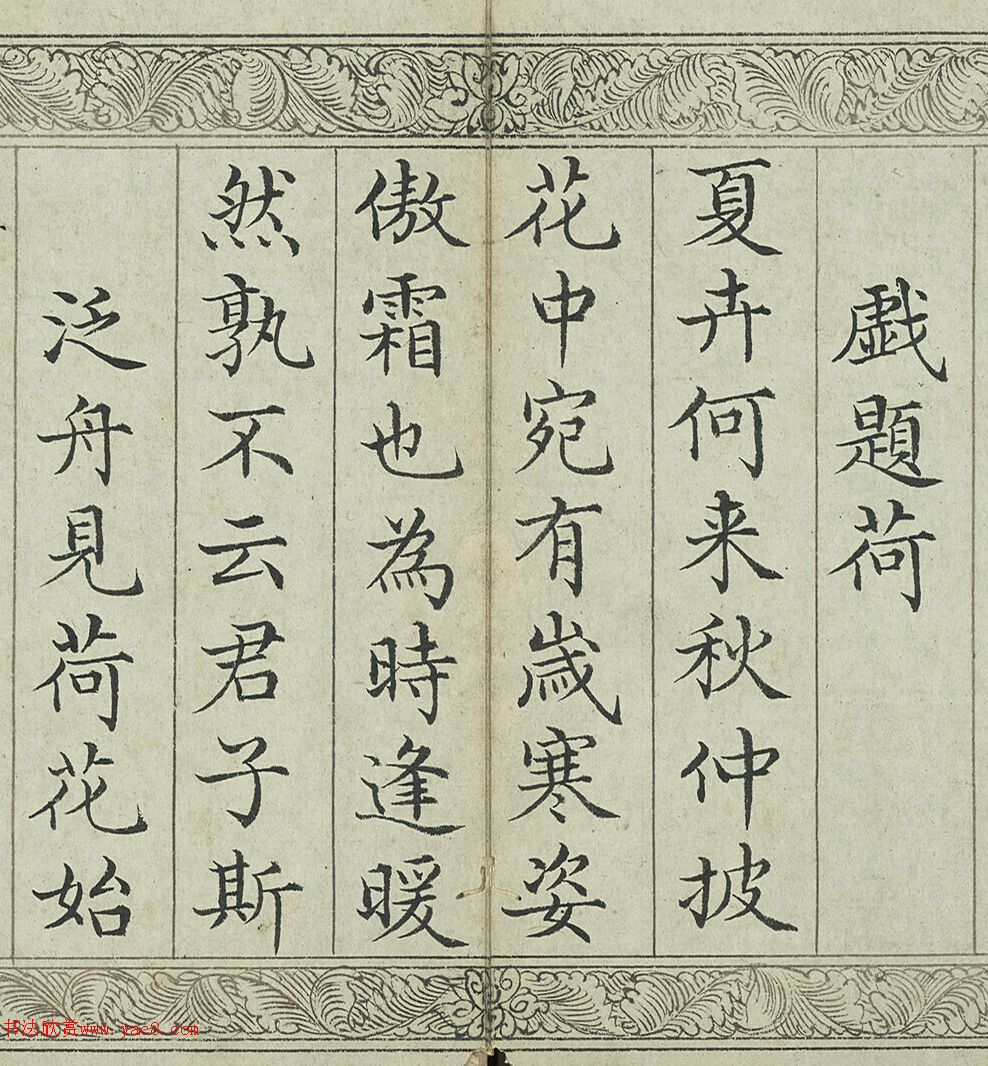 戯題荷
夏卉何来秋仲披
花中宛有歳寒姿
傲霜也為時逢暖
然孰不云君子斯
泛舟見荷花始
书法欣赏www.yac8.com